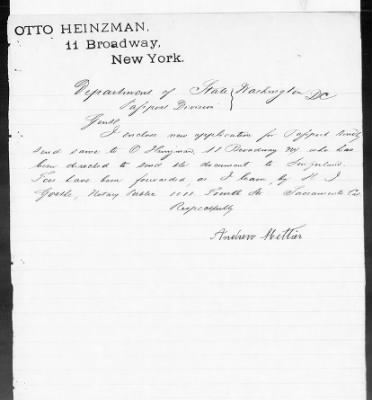 OTTO HEINZMAN,
11 Broadway,
New York.
Department of State } Washington DC
Passport Division
Gents
I enclose new application for Passport Kindly
send same to O Heinzman 11 Broadway NY who has
been directed to send the document to
Fees have been forwarded, as I learn by H J
Goethe, Notary Public 1011 Fourth St Sacramento Cal
Respectfully
Andrew Mettier